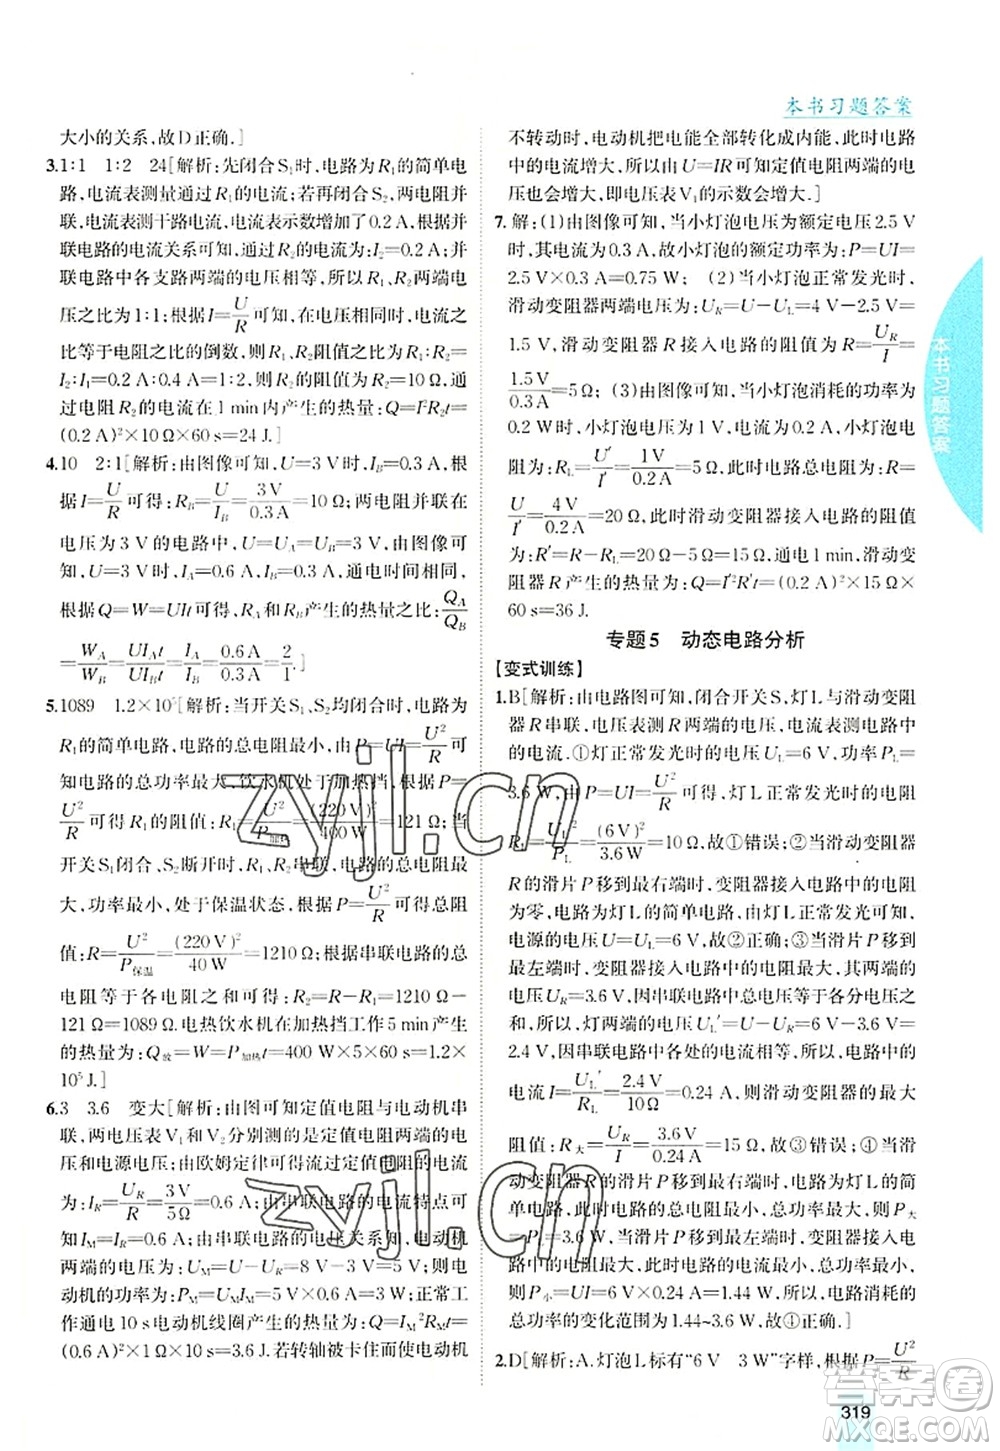 本书习题答案
大小的关系,故D正确.]
3.1∶1　1∶2　24[解析:先闭合S₁时,电路为R₁的简单电
路,电流表测量通过R₁的电流;若再闭合S₂,两电阻并
联,电流表测干路电流,电流表示数增大了0.2 A,根据并
联电路的电流关系可知,通过R₂的电流:I₂=0.2 A;根据
并联电路中各支路两端的电压相等,所以R₁、R₂两端的
电压之比为1∶1;根据I=U/R可知,在电压相同时,电流之
比等于电阻之比的倒数,则R₁、R₂阻值之比为R₁∶R₂=
I₂∶I₁=0.2 A∶0.4 A=1∶2,则R₂的阻值为10 Ω;
通过电阻R₂的电流在1 min内产生的热量:Q=I²R₂t=
(0.2 A)²×10 Ω×60 s=24 J.]
4.10　2∶1[解析:由图像可知,U=3 V时,I_B=0.3 A,根
据I=U/R可得:R_B=U/I_B=3 V/0.3 A=10 Ω;两电阻并联在
电压为3 V的电路中,U=U_A=U_B=3 V,由图像可知,
U=3 V时,I_A=0.6 A,I_B=0.3 A,通电时间相同,
根据Q=W=UIt可得,R_A和R_B产生的热量之比:Q_A/Q_B
=W_A/W_B=UI_At/UI_Bt=I_A/I_B=0.6 A/0.3 A=2/1.]
5.1089　1.2×10⁵[解析:当开关S₁、S₂均闭合时,电路为
R₁的简单电路,电路的总电阻最小,根据P=UI=U²/R可
知电路的总功率最大,饮水机处于加热挡,根据P=
U²/R可得R₁的阻值:R₁=U²/P加热=(220 V)²/400 W=121 Ω;当
开关S₁闭合、S₂断开时,R₁、R₂串联,电路的总电阻最
大,功率最小,处于保温状态,根据P=U²/R可得总阻
值:R=U²/P保温=(220 V)²/40 W=1210 Ω;根据串联电路的总
电阻等于各电阻之和可得:R₂=R-R₁=1210 Ω-
121 Ω=1089 Ω.电热饮水机在加热挡工作5 min产生
的热量为:Q放=W=P加热t=400 W×5×60 s=1.2×
10⁵ J.]
6.3　3.6　变大[解析:由图可知定值电阻与电动机串
联,两电压表V₁和V₂分别测的是定值电阻两端的电
压和电源电压,由欧姆定律可得通过定值电阻的电流
为:I_R=U_R/R=3 V/5 Ω=0.6 A;由串联电路的电流特点可
知:I_M=I_R=0.6 A,由串联电路的电压关系知,电动机
两端的电压为:U_M=U-U_R=8 V-3 V=5 V,电
动机的功率为:P_M=U_MI_M=5 V×0.6 A=3 W;正常工
作通电10 s电动机线圈产生的热量为:Q=I_M²R_Mt=
(0.6 A)²×1 Ω×10 s=3.6 J.若转轴被卡住而使电动机
不转动时,电动机把电能全部转化成内能,此时电路
中的电流增大,根据U=IR可知定值电阻两端的电
压也会增大,即电压表V₁的示数会增大.]
7.解:(1)由图像可知,当小灯泡电压为额定电压2.5 V
时,其电流为0.3 A,故小灯泡的额定功率为:P=UI=
2.5 V×0.3 A=0.75 W;　(2)当小灯泡正常发光时,
滑动变阻器两端电压为:U_R=U-U_L=4 V-2.5 V=
1.5 V,滑动变阻器R接入电路的阻值为R=U_R/I=
1.5 V/0.3 A=5 Ω;　(3)由图像可知,当小灯泡消耗的功率为
0.2 W时,小灯泡的电压为1 V,电流为0.2 A,其电阻
为:R_L=U′/I′=1 V/0.2 A=5 Ω,此时电路总电阻为:R总=
U/I′=4 V/0.2 A=20 Ω,此时滑动变阻器接入电路的阻值
为:R′=R总-R_L=20 Ω-5 Ω=15 Ω,通电1 min,滑动变
阻器R产生的热量为:Q=I′²R′t=(0.2 A)²×15 Ω×
60 s=36 J.
专题5　动态电路分析
【变式训练】
1.B[解析:由电路图可知,闭合开关S,灯L与滑动变阻
器R串联,电压表测R两端的电压,电流表测电路中
的电流.①灯正常发光时的电压U_L=6 V,功率P_L=
3.6 W,由P=UI=U²/R可得,灯L正常发光时的电阻
R_L=U_L²/P_L=(6 V)²/3.6 W=10 Ω,故①错误;②当滑动变阻器
R的滑片P移到最右端时,变阻器接入电路中的电阻
为零,电路为灯L的简单电路,灯L正常发光,则
电源的电压U=U_L=6 V,故②正确;③当滑片P移到
最左端时,变阻器接入电路中的电阻最大,此时电
压U_R=3.6 V,因串联电路中总电压等于各分电压
之和,所以,灯两端的电压U_L′=U-U_R=6 V-3.6 V=
2.4 V,因串联电路中各处的电流相等,所以,电路中的
电流I=U_L′/R_L=2.4 V/10 Ω=0.24 A,则滑动变阻器的最大
阻值:R大=U_R/I=3.6 V/0.24 A=15 Ω,故③错误;④当滑
动变阻器R的滑片P移到最右端时,灯正常发光,
此时电路中的电阻最小,电路的总功率最大,P大
=P_L=3.6 W,当滑片P移到最左端时,电路中的电
阻最大,电路的总功率最小,则电路的最小总功
率P小=UI=6 V×0.24 A=1.44 W,所以,电路
总功率的变化范围为1.44~3.6 W,故④正确.]
2.D[解析:A.灯泡L标有“6 V　3 W”字样,根据P=U²/R
本书习题答案
zyjl.cn
zyjl.cn
答案圈
MXQE.COM
319